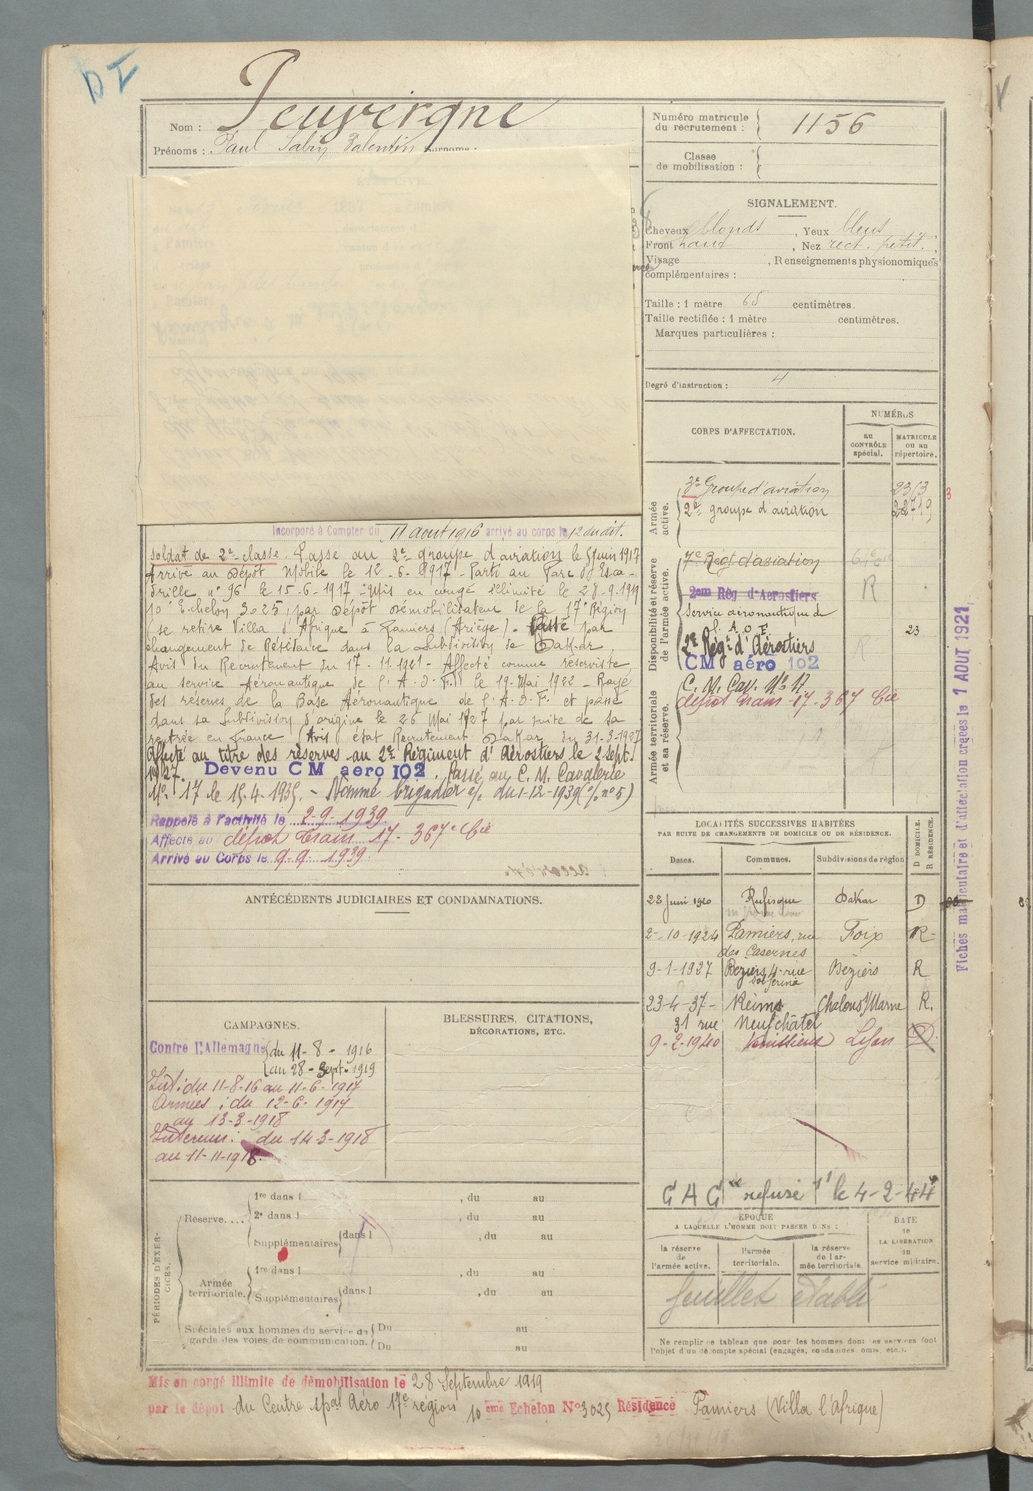 Nom :
Peuvergne
Prénoms : Paul Sabin Valentin Surnoms :
Numéro matricule
du recrutement :
1156
Classe
de mobilisation :
SIGNALEMENT.
Cheveux blonds , Yeux bleus
Front haut , Nez rect. petit.
Visage , Renseignements physionomiques
complémentaires :
Taille : 1 mètre 65 centimètres.
Taille rectifiée : 1 mètre centimètres.
Marques particulières :
Degré d'instruction : 4
CORPS D'AFFECTATION.
NUMÉROS
au
CONTRÔLE
spécial.
MATRICULE
ou au
répertoire.
Armée
active.
3e Groupe d'aviation
2e groupe d'aviation
Disponibilité et réserve
de l'armée active.
7e Régt d'aviation
R
2em Rég d'Aerostiers
Service aéronautique de
l'A.O.F.
23
2e Régt d'Aérostiers
CM aéro 102
Armée territoriale
et sa réserve.
C. M. Cav. No 17
dépôt train 17. 367 Cie
Incorporé à Compter du 11 août 1916 arrivé au corps le 12 du dit.
soldat de 2e classe. Passé au 2e groupe d'aviation le 5 juin 1917
Arrivé au Dépôt Mobile le 12-6-1917 - Parti au Parc d'Esca-
drille no 96 le 15-6-1917 - Mis en congé illimité le 28-9-1919
10e Echelon 3025, par Dépôt Démobilisateur de la 17e Région
(se retire Villa l'Afrique à Pamiers (Ariège). - Passé par
changement de Résidence dans la Subdivision de Dakar
Avis du Recrutement du 17.11.1921 - Affecté comme réserviste
au service Aéronautique de l'A.O.F. le 19 Mai 1922 - Rayé
des réserves de la Base Aéronautique de l'A.O.F et passé
dans sa Subdivision d'origine le 26 Mai 1927 par suite de sa
rentrée en France (Avis état Recrutement Dakar du 31-3-1927
Affecté au titre des réserves au 2e Régiment d'Aérostiers le 2 sept.
1927. Devenu CM aero 102. Passé au C. M. Cavalerie
No 17 le 15.4.1935. - Nommé brigadier du 1-12-1939
Rappelé à l'activité le 2-9-1939
Affecté au dépôt train 17 - 367e Cie
Arrivé au Corps le 9-9-1939.
ANTÉCÉDENTS JUDICIAIRES ET CONDAMNATIONS.
LOCALITÉS SUCCESSIVES HABITÉES
PAR SUITE DE CHANGEMENTS DE DOMICILE OU DE RÉSIDENCE.
D DOMICILE.
R RÉSIDENCE.
Dates.
Communes.
Subdivisions de région
Rufisque Dakar D
2-10-1924 Pamiers, rue Foix R
des Casernes
9-1-1927 Béziers, 4 rue Béziers R
23-4-37- Reims Chalons s/Marne R.
31 rue Neufchâtel
9-2-1940 Vénissieux Lyon D.
Fiches matriculaire et d'affectation créées le 1 AOUT 1921
CAMPAGNES.
Contre l'Allemagne du 11-8-1916
au 28-Sept-1919
Int: du 11-8-16 au 11-6-1917
Armées : du 12-6-1917
au 13-3-1918
Intérieur: du 14-3-1918
au 11-11-1918.
BLESSURES, CITATIONS,
DÉCORATIONS, ETC.
PÉRIODES D'EXER-
CICES.
Réserve....
1re dans l , du au
2e dans l , du au
Supplémentaires dans l , du au
Armée
territoriale.
1re dans l , du au
Supplémentaires dans l , du au
Spéciales aux hommes du service de
garde des voies de communication.
Du au
Du au
refusé le 4-2-44
ÉPOQUE
A LAQUELLE L'HOMME DOIT PASSER DANS :
la réserve
de
l'armée active.
l'armée
territoriale.
la réserve
de l'ar-
mée territoriale.
DATE
de
LA LIBÉRATION
du
service militaire.
feuillet établi
Ne remplir ce tableau que pour les hommes dont les services font
l'objet d'un décompte spécial (engagés, condamnés, omis, etc.).
Mis en congé illimité de démobilisation le 28 Septembre 1919
par le dépôt du Centre Aéro 17e région 10 ème Echelon No 3025 Résidence Pamiers (Villa l'Afrique)